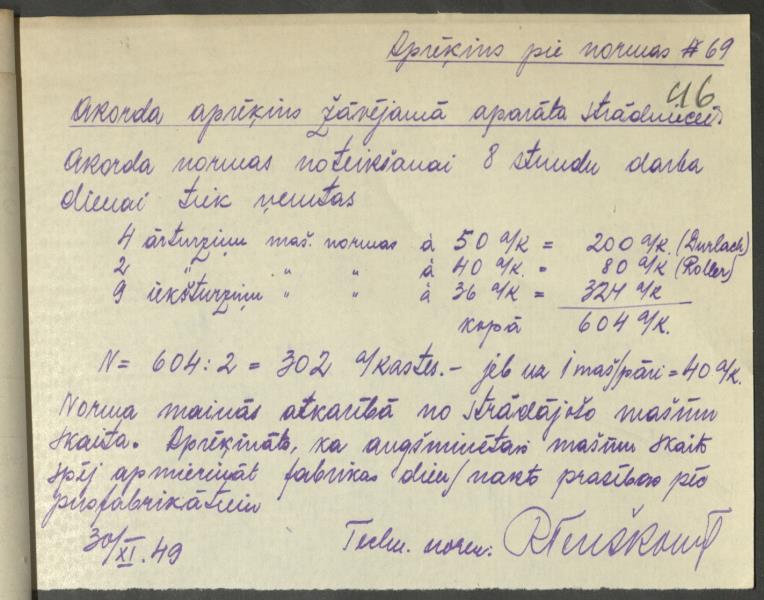 Aprēķins pie normas # 69
46
Akorda aprēķins žāvējamā aparāta strādniecei.
Akorda normas noteikšanai 8 stundu darba
dienai tiek ņemtas
4 ārturziņu maš. normas à 50 a/k = 200 a/k. (Durlach)
2 " " " à 40 a/k. = 80 a/k (Roller)
9 iekšturziņu " " à 36 a/k = 324 a/k
kopā 604 a/k.
N = 604 : 2 = 302 a/kastes. – jeb uz 1 maš/pāri = 40 a/k.
Norma mainās atkarībā no strādājošo mašīnu
skaita. Aprēķināts, ka augšminētais mašīnu skaits
spēj apmierināt fabrikas dien/nakts prasības pēc
pusfabrikātiem
30/XI. 49 Techn. norm: